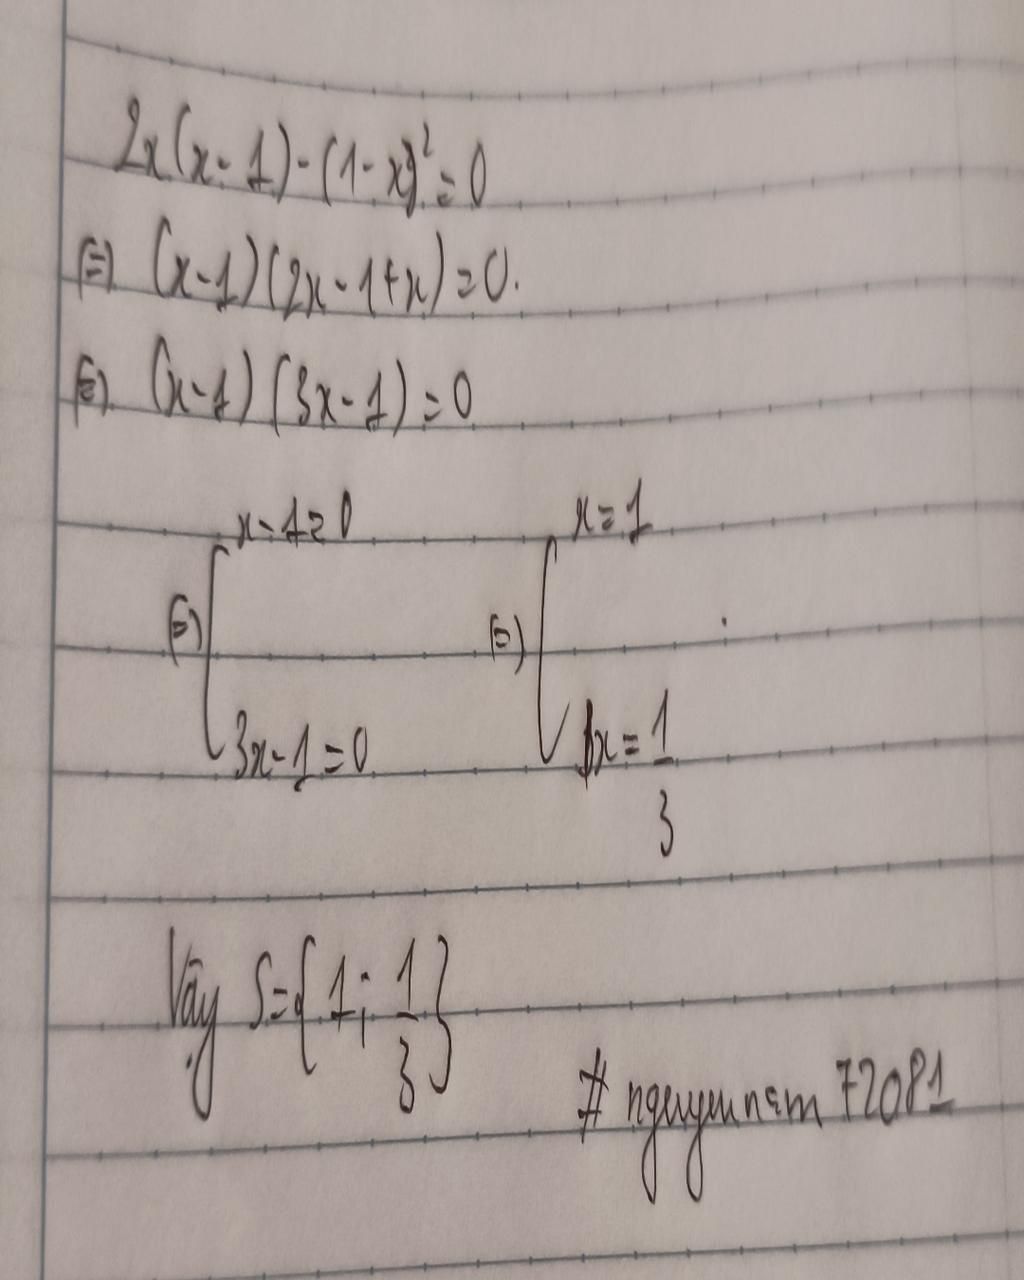 2x(x-1)-(1-x)²=0
⇔ (x-1)(2x-1+x)=0.
⇔ (x-1)(3x-1)=0
⇔ [ x-1=0 ⇔ [ x=1
3x-1=0 x=1/3
Vậy S={1;1/3}
# nguyennam 72081